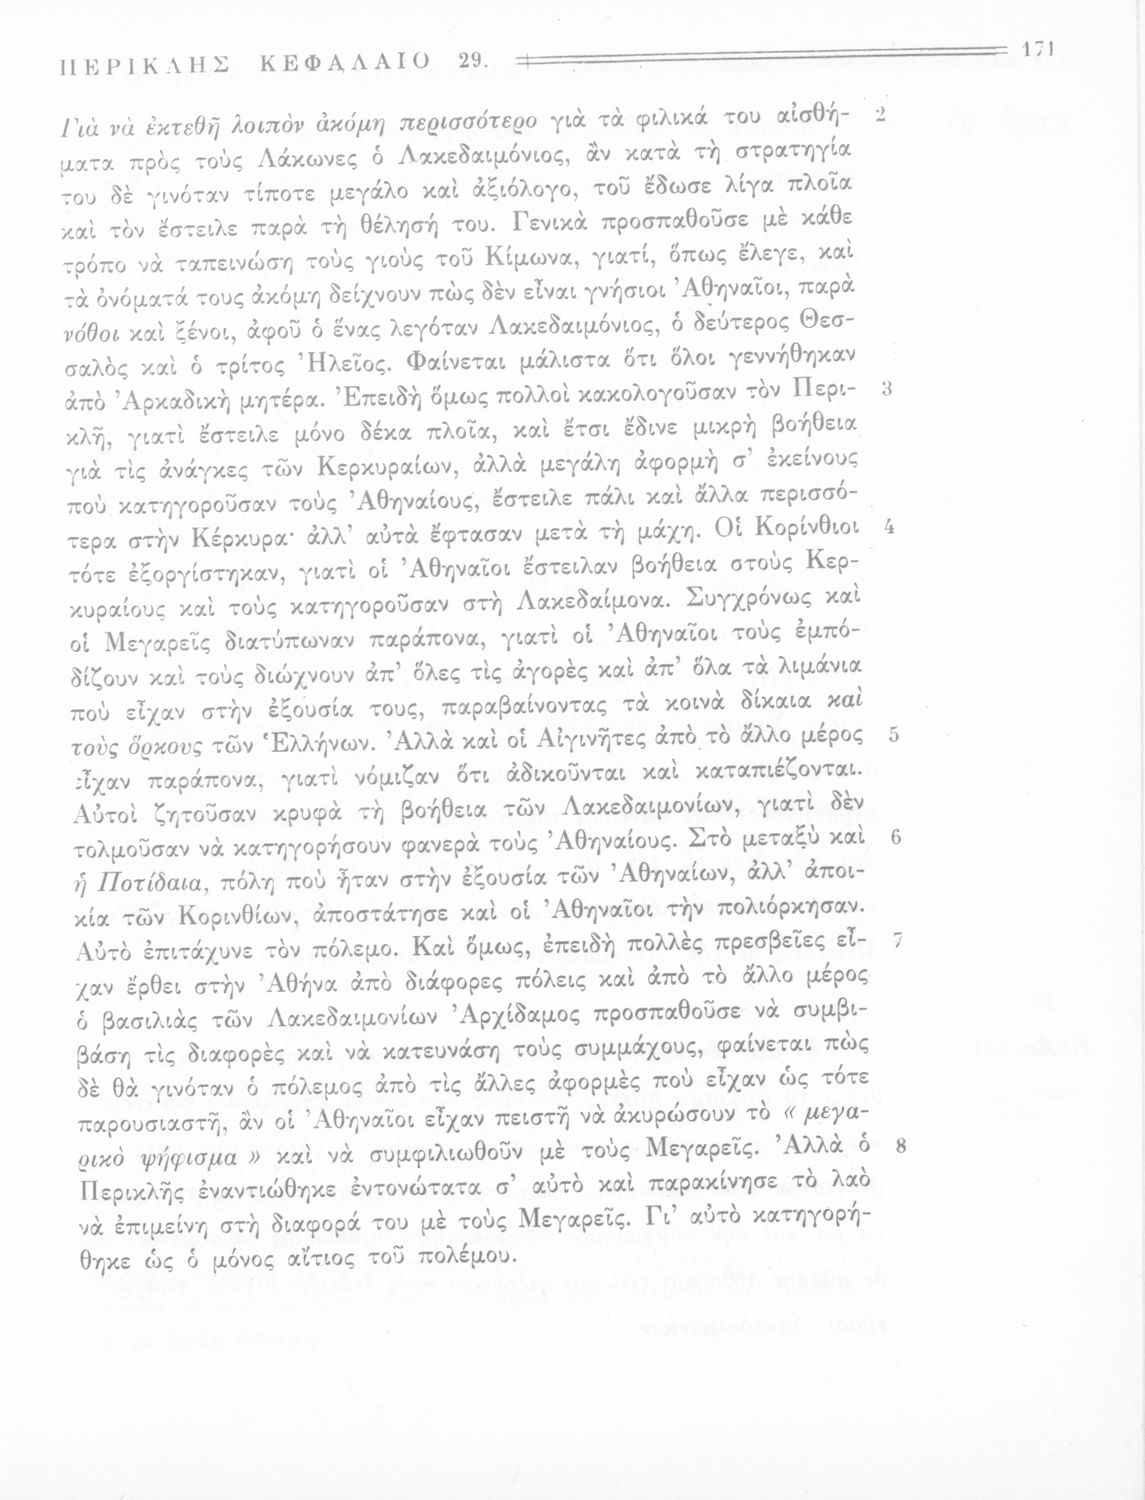 ΠΕΡΙΚΛΗΣ ΚΕΦΑΛΑΙΟ 29. 171
Γιὰ νὰ ἐκτεθῆ λοιπὸν ἀκόμη περισσότερο γιὰ τὰ φιλικά του αἰσθή- 2
ματα πρὸς τοὺς Λάκωνες ὁ Λακεδαιμόνιος, ἂν κατὰ τὴ στρατηγία
του δὲ γινόταν τίποτε μεγάλο καὶ ἀξιόλογο, τοῦ ἔδωσε λίγα πλοῖα
καὶ τὸν ἔστειλε παρὰ τὴ θέλησή του. Γενικὰ προσπαθοῦσε μὲ κάθε
τρόπο νὰ ταπεινώση τοὺς γιοὺς τοῦ Κίμωνα, γιατί, ὅπως ἔλεγε, καὶ
τὰ ὀνόματά τους ἀκόμη δείχνουν πὼς δὲν εἶναι γνήσιοι Ἀθηναῖοι, παρὰ
νόθοι καὶ ξένοι, ἀφοῦ ὁ ἕνας λεγόταν Λακεδαιμόνιος, ὁ δεύτερος Θεσ-
σαλὸς καὶ ὁ τρίτος Ἠλεῖος. Φαίνεται μάλιστα ὅτι ὅλοι γεννήθηκαν
ἀπὸ Ἀρκαδικὴ μητέρα. Ἐπειδὴ ὅμως πολλοὶ κακολογοῦσαν τὸν Περι- 3
κλῆ, γιατὶ ἔστειλε μόνο δέκα πλοῖα, καὶ ἔτσι ἔδινε μικρὴ βοήθεια
γιὰ τὶς ἀνάγκες τῶν Κερκυραίων, ἀλλὰ μεγάλη ἀφορμὴ σ’ ἐκείνους
ποὺ κατηγοροῦσαν τοὺς Ἀθηναίους, ἔστειλε πάλι καὶ ἄλλα περισσό-
τερα στὴν Κέρκυρα· ἀλλ’ αὐτὰ ἔφτασαν μετὰ τὴ μάχη. Οἱ Κορίνθιοι 4
τότε ἐξοργίστηκαν, γιατὶ οἱ Ἀθηναῖοι ἔστειλαν βοήθεια στοὺς Κερ-
κυραίους καὶ τοὺς κατηγοροῦσαν στὴ Λακεδαίμονα. Συγχρόνως καὶ
οἱ Μεγαρεῖς διατύπωναν παράπονα, γιατὶ οἱ Ἀθηναῖοι τοὺς ἐμπό-
δίζουν καὶ τοὺς διώχνουν ἀπ’ ὅλες τὶς ἀγορὲς καὶ ἀπ’ ὅλα τὰ λιμάνια
ποὺ εἶχαν στὴν ἐξουσία τους, παραβαίνοντας τὰ κοινὰ δίκαια καὶ
τοὺς ὅρκους τῶν Ἑλλήνων. Ἀλλὰ καὶ οἱ Αἰγινῆτες ἀπὸ τὸ ἄλλο μέρος 5
εἶχαν παράπονα, γιατὶ νόμιζαν ὅτι ἀδικοῦνται καὶ καταπιέζονται.
Αὐτοὶ ζητοῦσαν κρυφὰ τὴ βοήθεια τῶν Λακεδαιμονίων, γιατὶ δὲν
τολμοῦσαν νὰ κατηγορήσουν φανερὰ τοὺς Ἀθηναίους. Στὸ μεταξὺ καὶ 6
ἡ Ποτίδαια, πόλη ποὺ ἦταν στὴν ἐξουσία τῶν Ἀθηναίων, ἀλλ’ ἀποι-
κία τῶν Κορινθίων, ἀποστάτησε καὶ οἱ Ἀθηναῖοι τὴν πολιόρκησαν.
Αὐτὸ ἐπιτάχυνε τὸν πόλεμο. Καὶ ὅμως, ἐπειδὴ πολλὲς πρεσβεῖες εἶ- 7
χαν ἔρθει στὴν Ἀθήνα ἀπὸ διάφορες πόλεις καὶ ἀπὸ τὸ ἄλλο μέρος
ὁ βασιλιὰς τῶν Λακεδαιμονίων Ἀρχίδαμος προσπαθοῦσε νὰ συμβι-
βάση τὶς διαφορὲς καὶ νὰ κατευνάση τοὺς συμμάχους, φαίνεται πὼς
δὲ θὰ γινόταν ὁ πόλεμος ἀπὸ τὶς ἄλλες ἀφορμὲς ποὺ εἶχαν ὡς τότε
παρουσιαστῆ, ἂν οἱ Ἀθηναῖοι εἶχαν πειστῆ νὰ ἀκυρώσουν τὸ « μεγα-
ρικὸ ψήφισμα » καὶ νὰ συμφιλιωθοῦν μὲ τοὺς Μεγαρεῖς. Ἀλλὰ ὁ 8
Περικλῆς ἐναντιώθηκε ἐντονώτατα σ’ αὐτὸ καὶ παρακίνησε τὸ λαὸ
νὰ ἐπιμείνη στὴ διαφορά του μὲ τοὺς Μεγαρεῖς. Γι’ αὐτὸ κατηγορή-
θηκε ὡς ὁ μόνος αἴτιος τοῦ πολέμου.